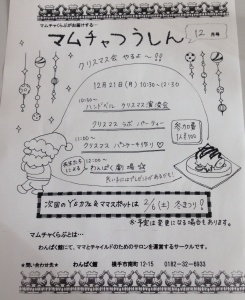 マムチャくらぶがお届けする〜
マムチャつうしん
12月号
クリスマス会 やるよ〜!!
12月21日(月) 10:30〜12:30
10:30〜
ハンドベル クリスマス演奏会
クリスマス ラボ パーティー
クリスマス パンケーキ作り
12:00〜
わんぱく劇場☆
良い子にはプレゼントがあるかも!
参加費
次回のY'sカフェ&ママスポットは 2/6(土) 冬まつり?
※予定は変更になる場合もあります。
マムチャくらぶとは…
わんぱく館にて、ママとチャイルドのためのサロンを運営するサークルです。
★問い合わせ先★ わんぱく館 横手市南町12-15 0182-32-6933